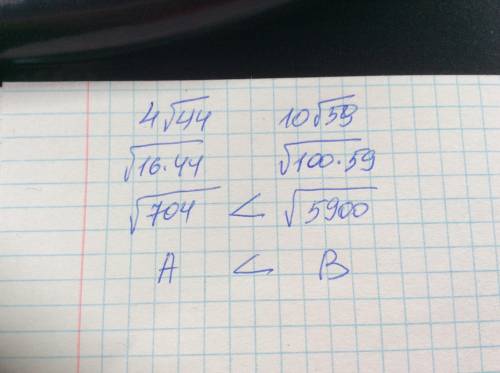 4√44 10√59
√16·44 √100·59
√704 < √5900
A < B